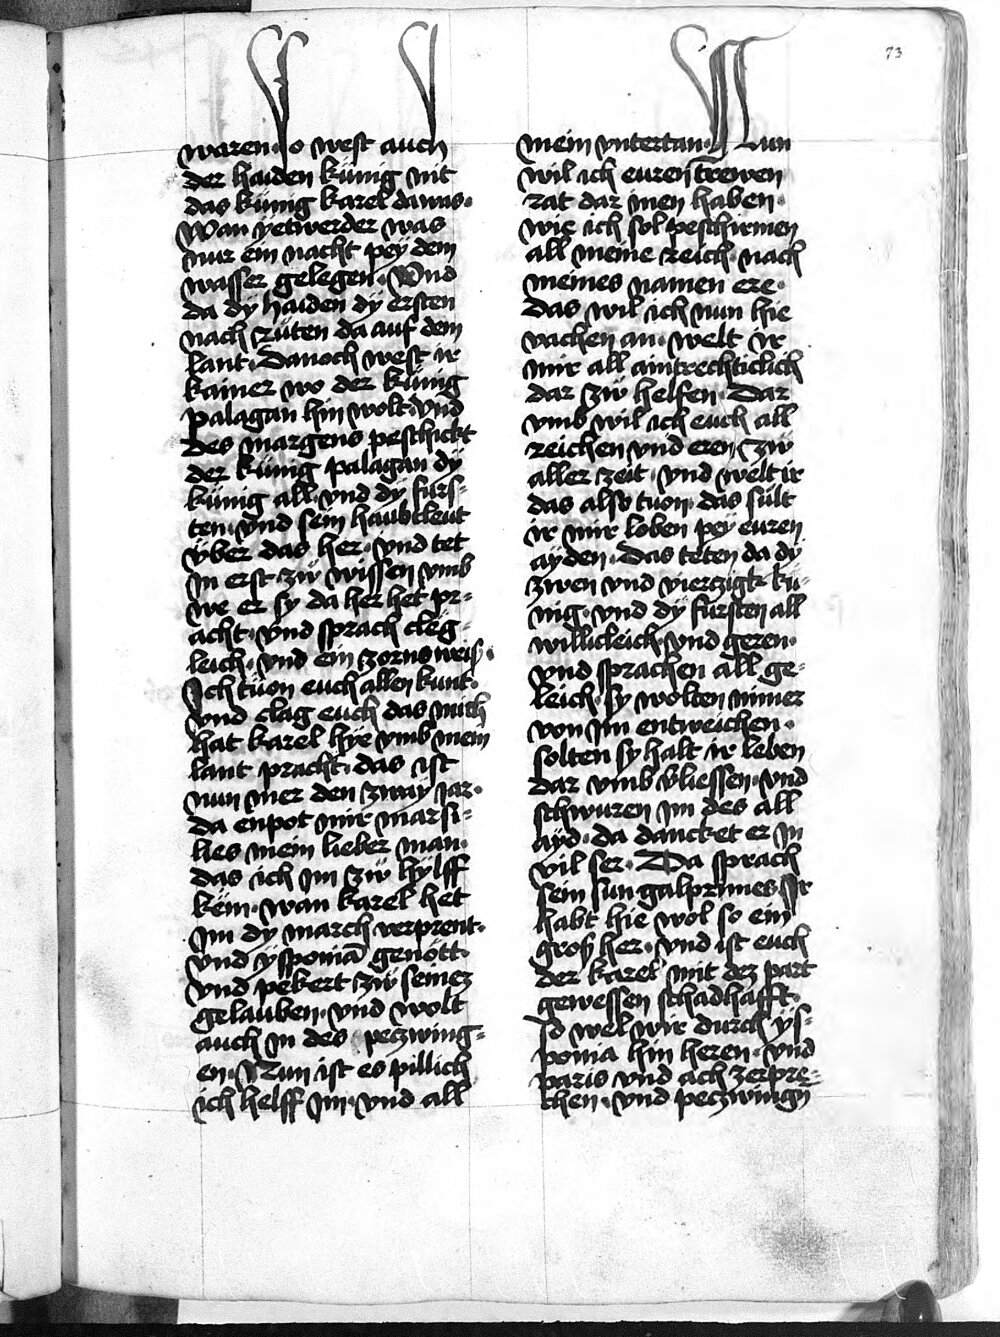 73
waren · So west auch
der haiden künig nit
das künig karel da was ·
Wan yetwerder was
nur ein nacht pey dem
wasser gelegen · Vnd
da dÿ haiden dÿ ersten
nach züten da auf dem
lant · Danoch west ir
kainer wo der künig
palagan hin wolt · Vnd
des margens peschickt
der künig palagan dÿ
künig all · vnd dÿ fürs=
ten · vnd sein haubtleut
ÿber das her · vnd tet
in erst zw wissen vmb
we er sy da her het pr=
acht · vnd sprach cleg=
leich · vnd ein zorns weis ·
Ich tuon euch allen kunt ·
vnd clag euch das mich
hat karel hÿe vmb mein
lant pracht · das ist
nun mer den zway jar ·
da enpot mir marsi=
lies mein lieber man ·
das ich im zw hÿlff
kem · wan karel het
im dÿ march verprent ·
vnd ÿsponiā genött ·
vnd pekert zw seinez
gelauben · vnd wolt
auch in des peczwing=
en · Nun ist es pillich
ich helff im · vnd all
mein vntertan · Nun
wil ich euren trewen
rat dar inen haben ·
wie ich sol peschirmen
all meine reich · nach
meines namen ere ·
Das wil ich nun hie
vachen an · welt ir
mir all aintrechticlich
dar zw helfen · Dar
vmb wil ich euch all
reichen vnd eren zw
aller zeit · vnd welt ir
das also tuon · das sült
ir mir loben peÿ euren
ayden · Das teten da dÿ
zwen vnd vierczigk kü=
nig · vnd dÿ fürsten all
willicleich · vnd geren ·
vnd sprachen all ge=
leich · sy wolten nimer
von im entweichen ·
solten sy halt ir leben
dar vmb vliessen · vnd
schwuren im des all
ayd · da dancket er in
vil ser · Da sprach
sein sun galprimes · Ir
habt hie wol so ein
gros her · vnd ist euch
der karel mit dez part
gewessen schadhafft ·
so wel wir durch ÿs=
ponia hin heren · vnd
paris vnd ach zerpre=
chen · vnd peczwingn